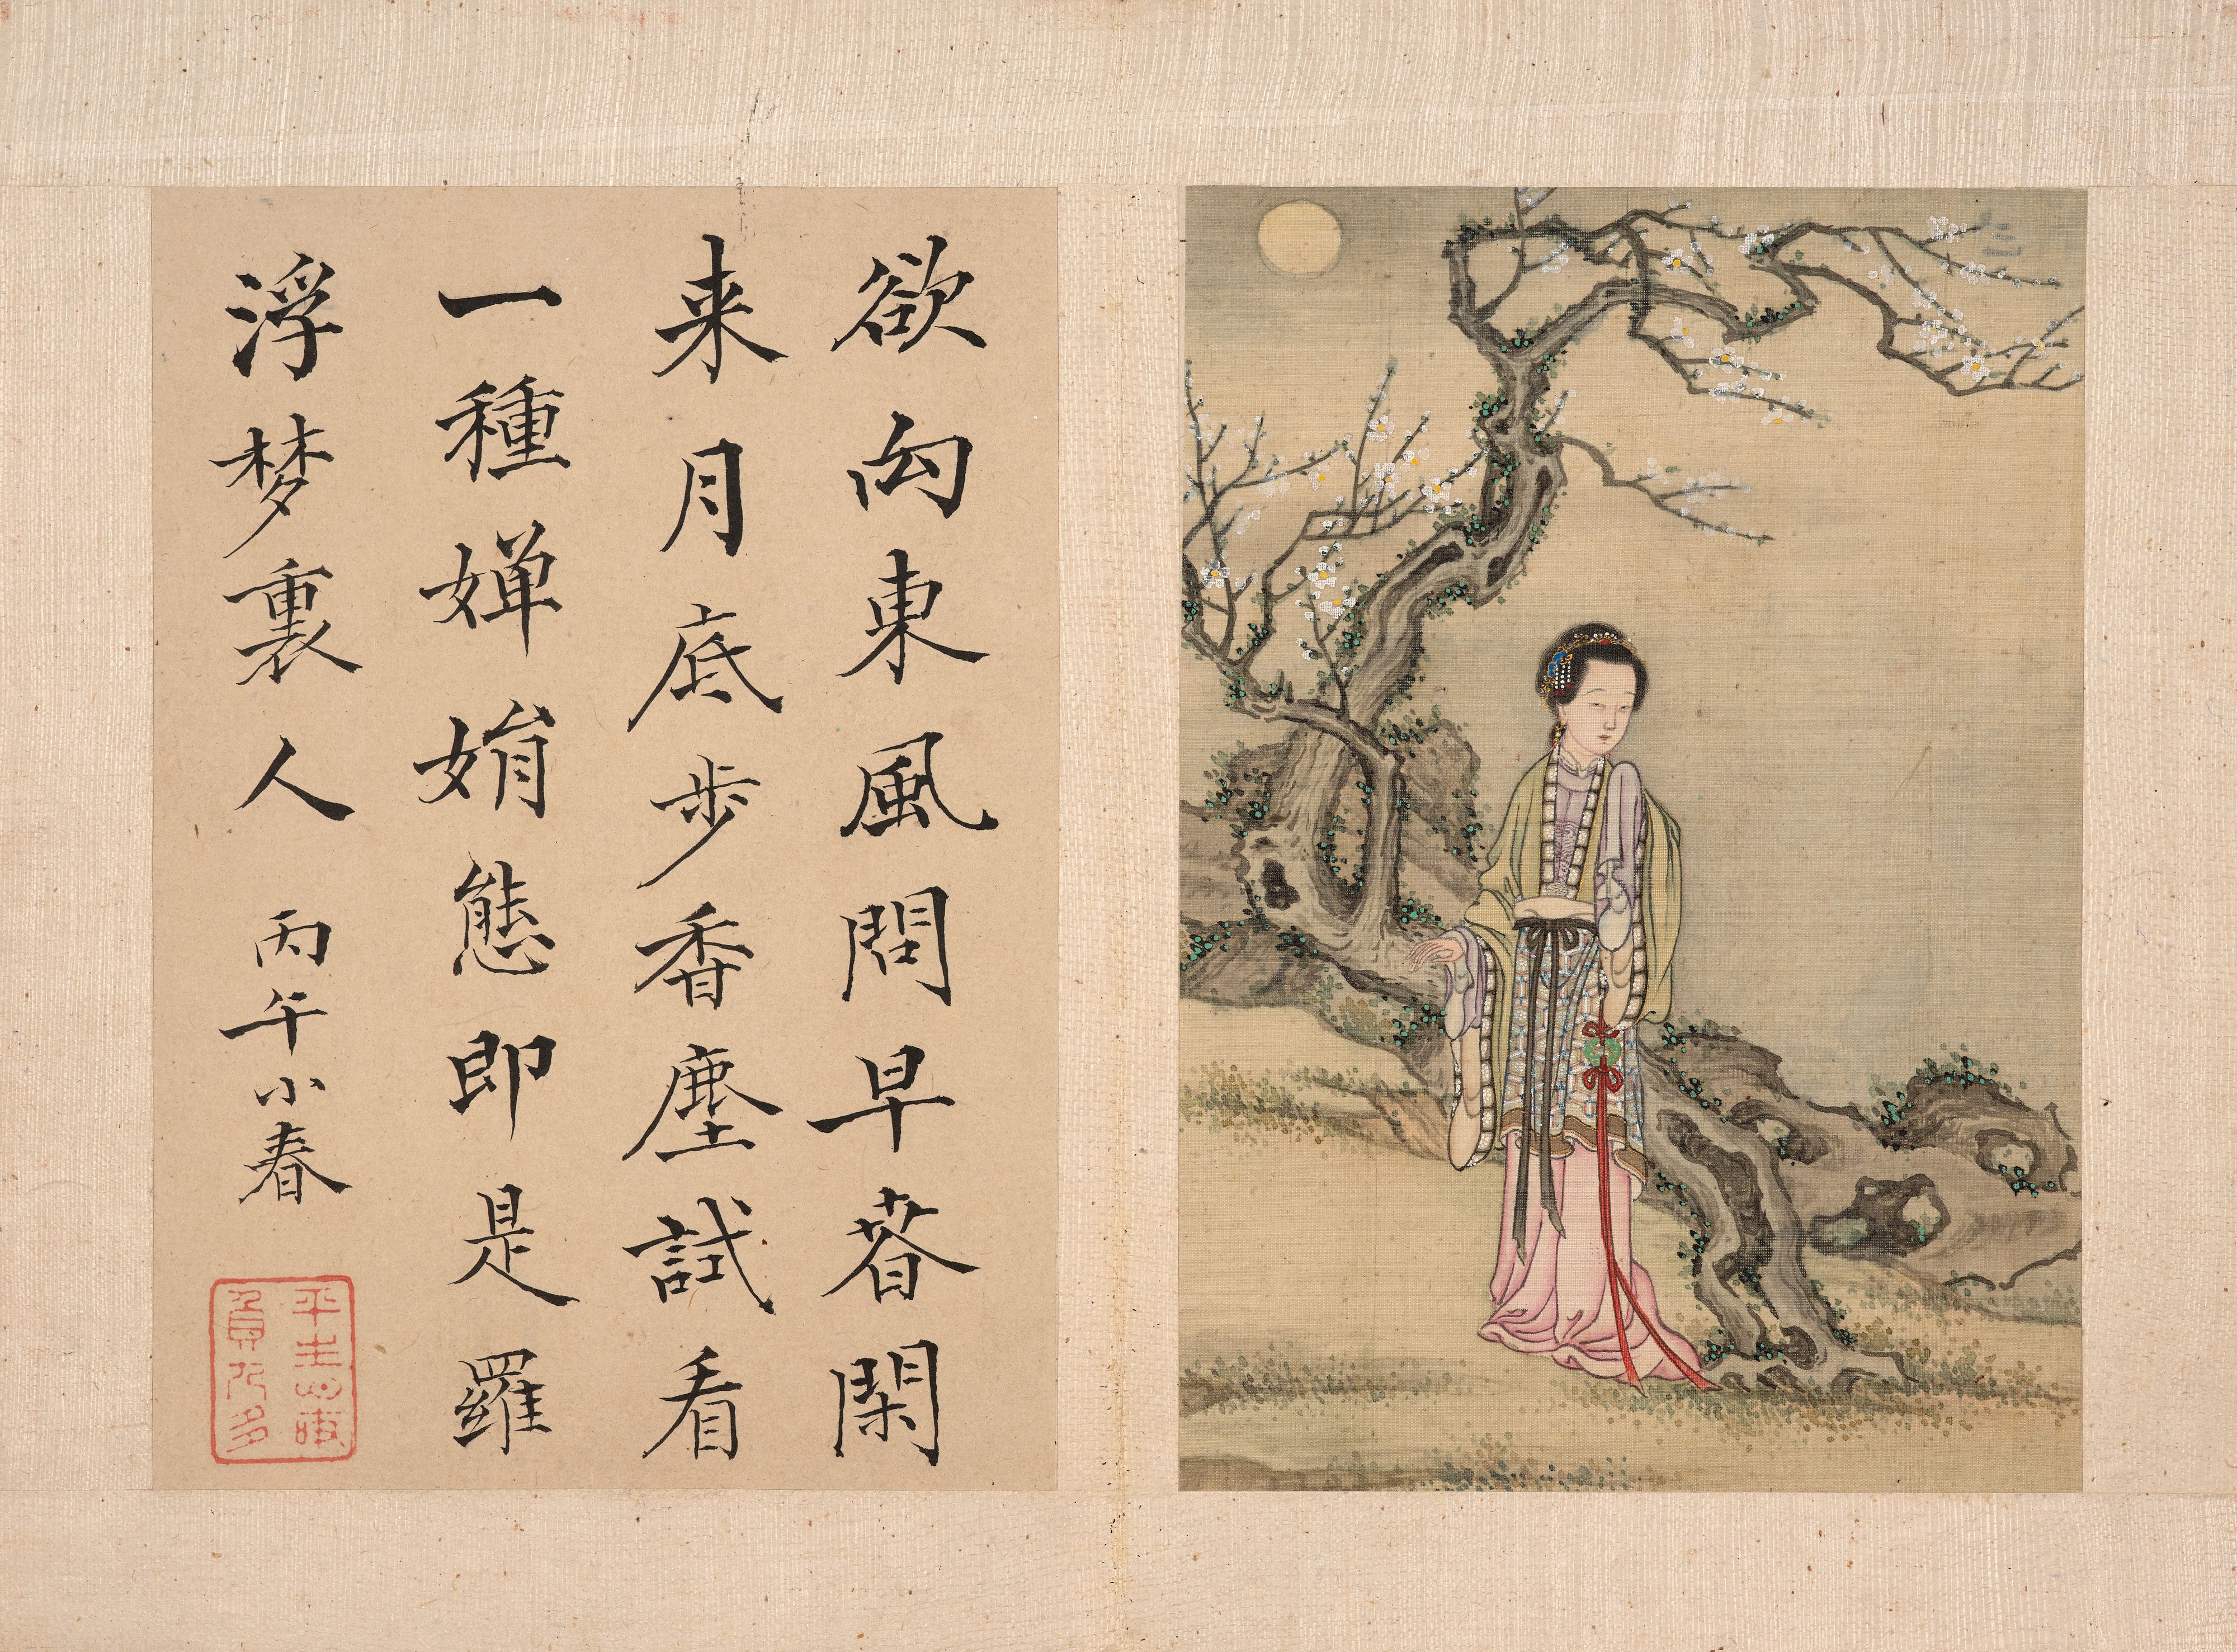 欲向東風問早春閑
来月底步香塵試看
一種嬋娟態即是羅
浮梦裏人 丙午小春
平生
多